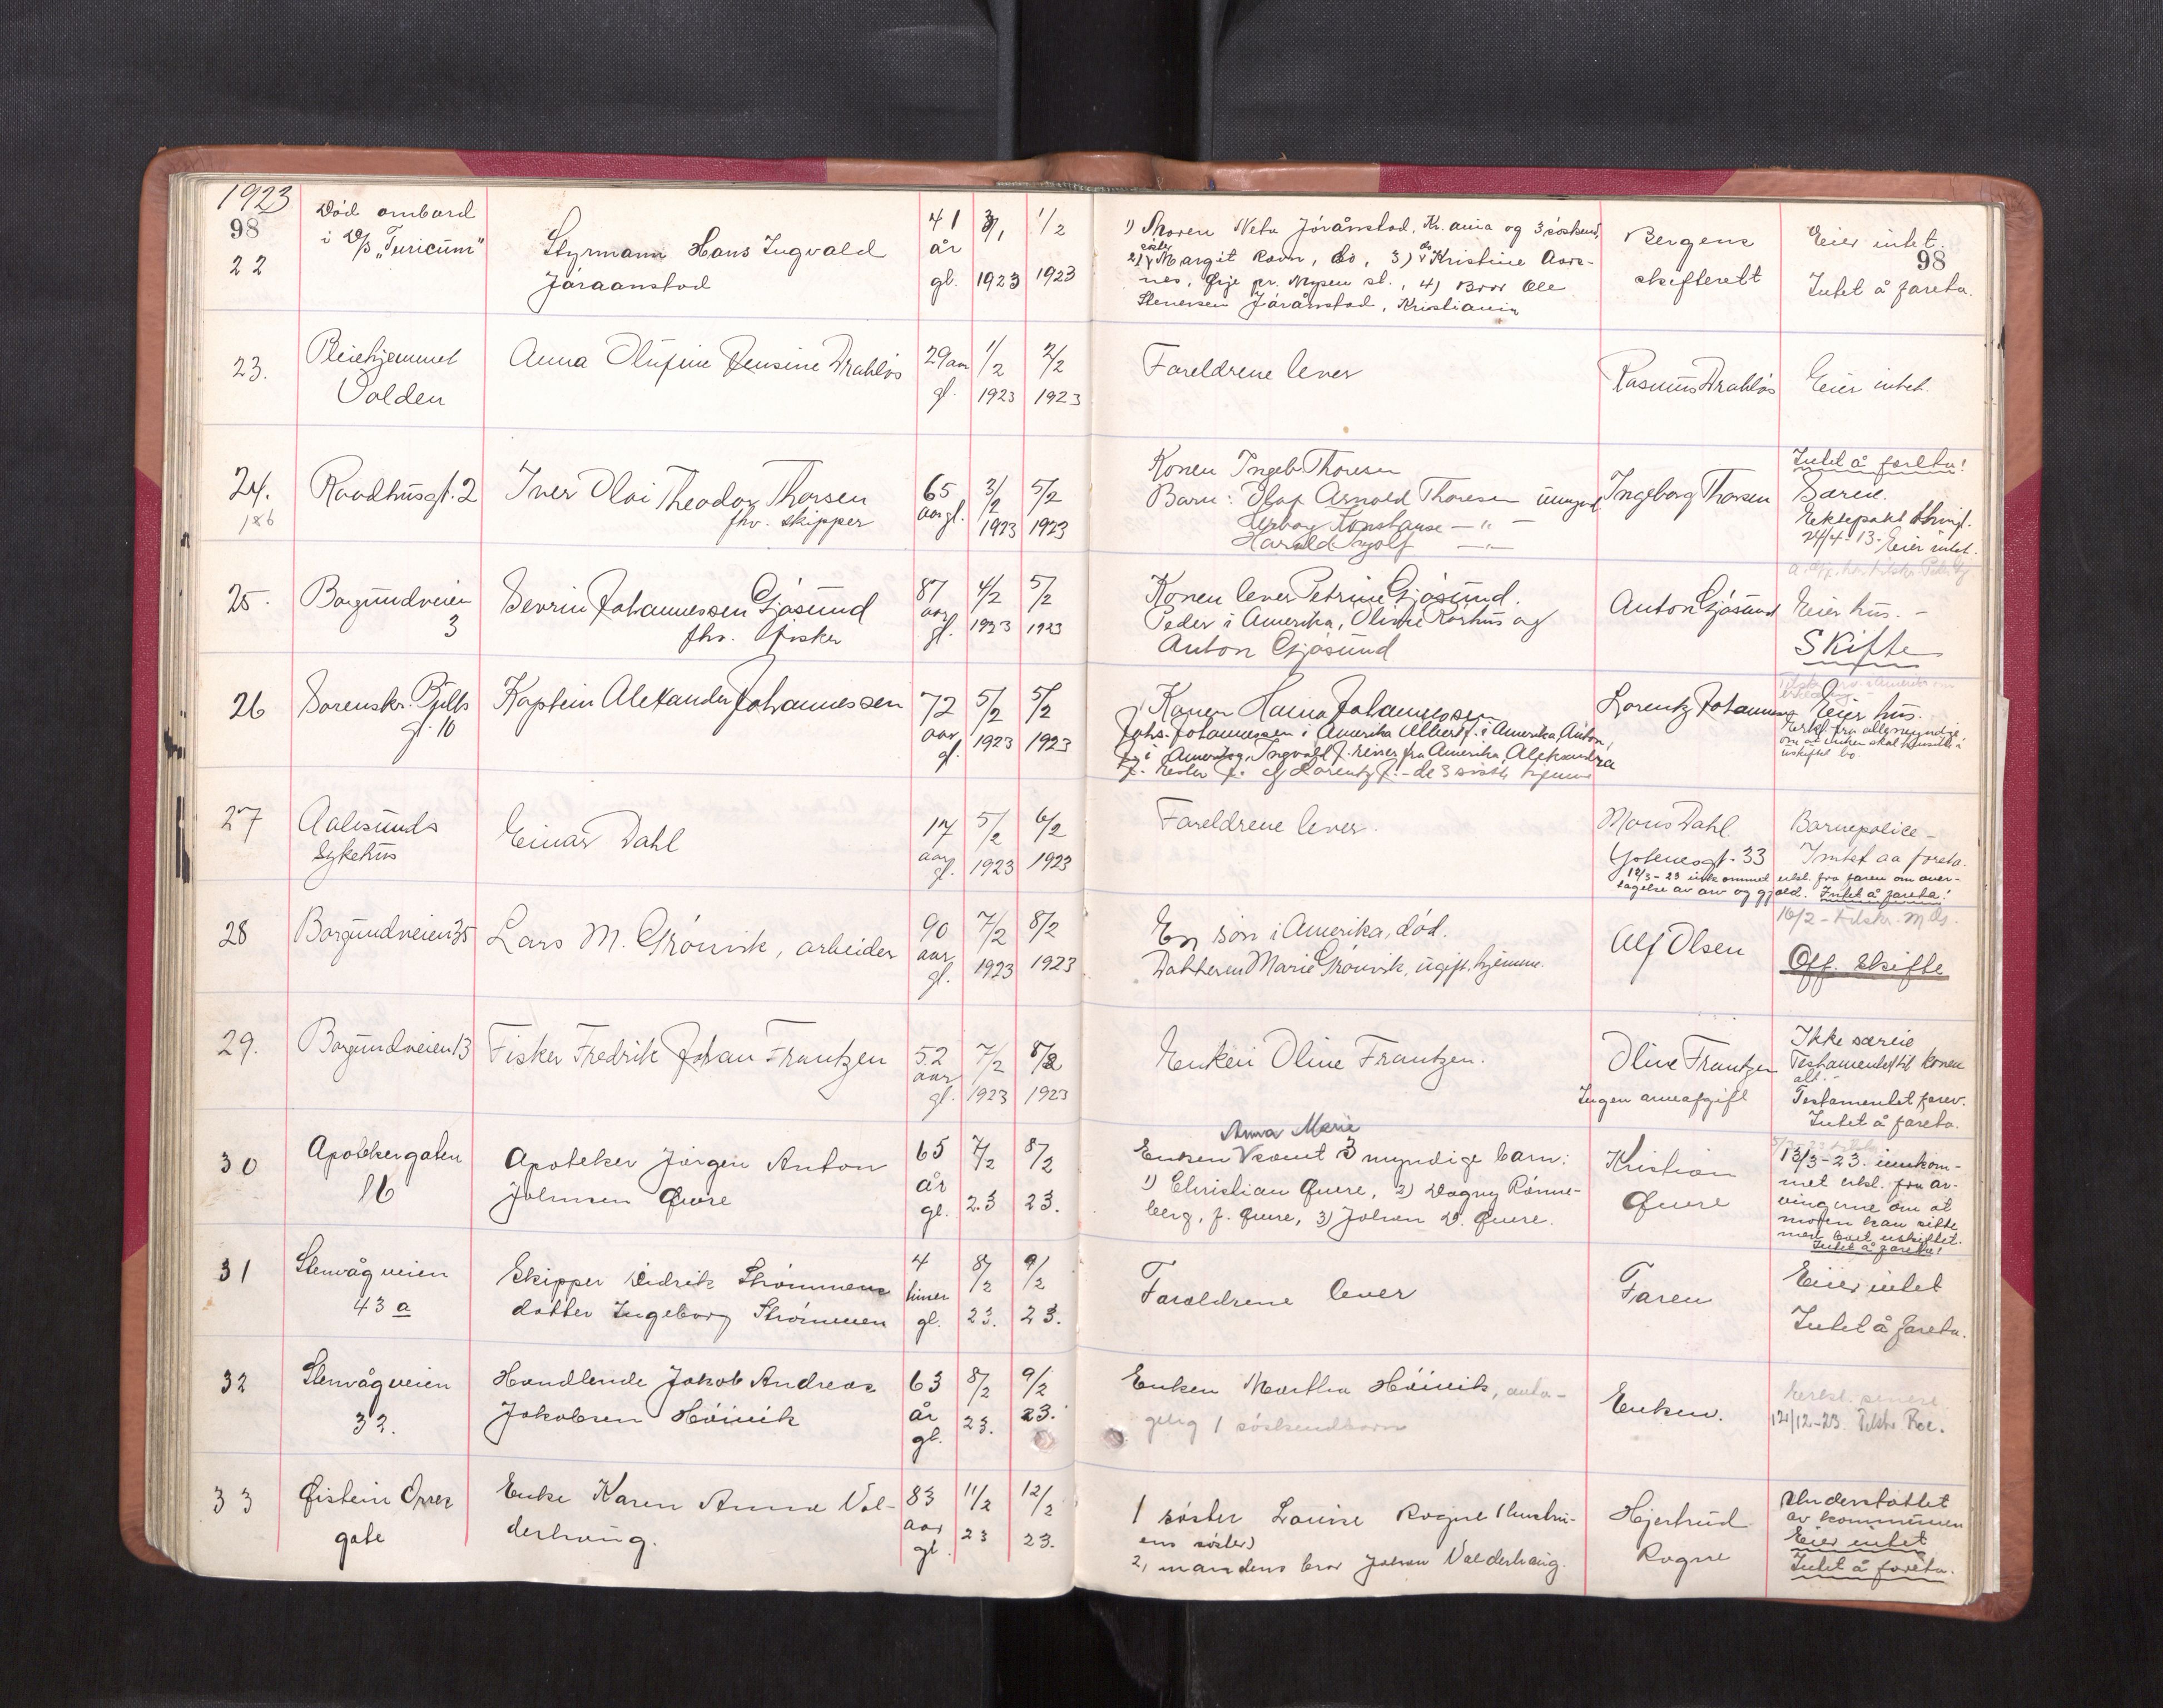 1923
98
22
Død ombord
i D/S „Turicum"
Styrmann Hans Ingvald
Jøraanstad
41
år
gl.
3/1
1923
1/2
1923
1) Moren Neta Jøranstad, Kr.ania og 3 søskend,
2) søster Margit Ravn, do, 3) do Kristine Aars-
nes, Ørje pr. Mysen st., 4) Bror Ole
Stenersen Jøranstad, Kristiania
Bergens
skifterett
Eier intet.
98
Intet å foreta.
23.
Pleiehjemmet
Volden
Anna Olufine Jensine Drabløs
29 aar
gl.
1/2
1923
2/2
1923
Foreldrene lever
Rasmus Drabløs
Eier intet.
Intet å foreta!
24.
186
Raadhusgt. 2
Iver Olai Theodor Thorsen
fhv. skipper
65
aar gl.
3/2
1923
5/2
1923
Konen Ingeb. Thoresen
Barn: Olaf Arnold Thoresen umynd.
Konstanse — " —
Harald — " —
Ingeborg Thorsen
Særeie.
Ektepakt
24/4-13. Eier intet.
25.
Borgundveien
3
Sevrin Johannessen Gjøsund
fhv. fisker
87
aar
gl.
4/2
1923
5/2
1923
Konen lever Petrine Gjøsund.
Peder i Amerika, Oline Rørhus og
Anton Gjøsund
Anton Gjøsund
Eier hus. -
Skifte
26
Sorenskr. Bulls
gt. 10
Kaptein Alexander Johannessen
72
aar
gl.
5/2
1923
5/2
1923
Konen Hanna Johannessen
Johs. Johannessen i Amerika Albert J. i Amerika, Anton
J. i Amerika, Ingvald J. reiser fra Amerika, Aleksandra
J. J. og Lorentz J. - de 3 sidste hjemme
Lorentz Johannessen
Eier hus.
Erkl. fra alle myndige
om at enken skal hensitte i
uskiftet bo
27
Aalesunds
Sykehus
Einar Dahl
17
aar
gl.
5/2
1923
6/2
1923
Foreldrene lever.
Mons Dahl
gt. 33
Barnepolice -
Intet aa foreta.
12/3-23 innkommet erkl. fra faren om over-
tagelse av arv og gjæld. Intet å foreta!
28
Borgundveien 35
Lars M. Grønvik, arbeider
90
aar
gl.
7/2
1923
8/2
1923
En søn i Amerika, død.
Datteren Marie Grønvik, ugift, hjemme.
Alf Olsen
16/2 - tilskr.
Off. Skifte
29.
Borgundveien 13
Fisker Fredrik Johan Frantzen
52
aar
gl.
7/2
1923
8/2
1923
Enken Oline Frantzen.
Oline Frantzen
Ingen arveafgift
Ikke særeie
Testamentet til konen
alt. -
Testamentet forev.
Intet å foreta.
30
Apotekergaten
16
Apoteker Jørgen Anton
Johnsen Qvere
65
år
gl.
7/2
23
8/2
23.
Anna Marie
Enken samt 3 myndige barn:
1) Christian Qvere, 2) Dagny Rønne-
berg, f. Qvere, 3) Johan D. Qvere.
Kristian
Qvere
13/3-23. innkom-
met erkl. fra ar-
vingerne om at
moren kan sitte
med boet uskiftet.
Intet å foreta!
31
Stenvågveien
43 a
Skipper Didrik Strømmens
datter Ingeborg Strømmen
4
timer
gl.
8/2
23.
9/2
23.
Foreldrene lever
Faren
Eier intet
Intet å foreta.
32
Stenvågveien
32.
Handlende Jakob Andreas
Jakobsen Høivik
63
år
gl.
8/2
23.
9/2
23.
Enken Martha Høivik, anta-
gelig 1 søskendbarn
Enken.
Erkl. senere
12/12-23.
33
Øistein Orres
gate
Enke Karen Anna Val-
derhaug.
83
aar
gl.
11/2
23
12/2
23.
1 søster Louise Rogne (hustru-
ens søster)
2, mandens bror Johan Valderhaug.
Hjertrud
Rogne
Understøttet
av kommunen
Eier intet
Intet å foreta.